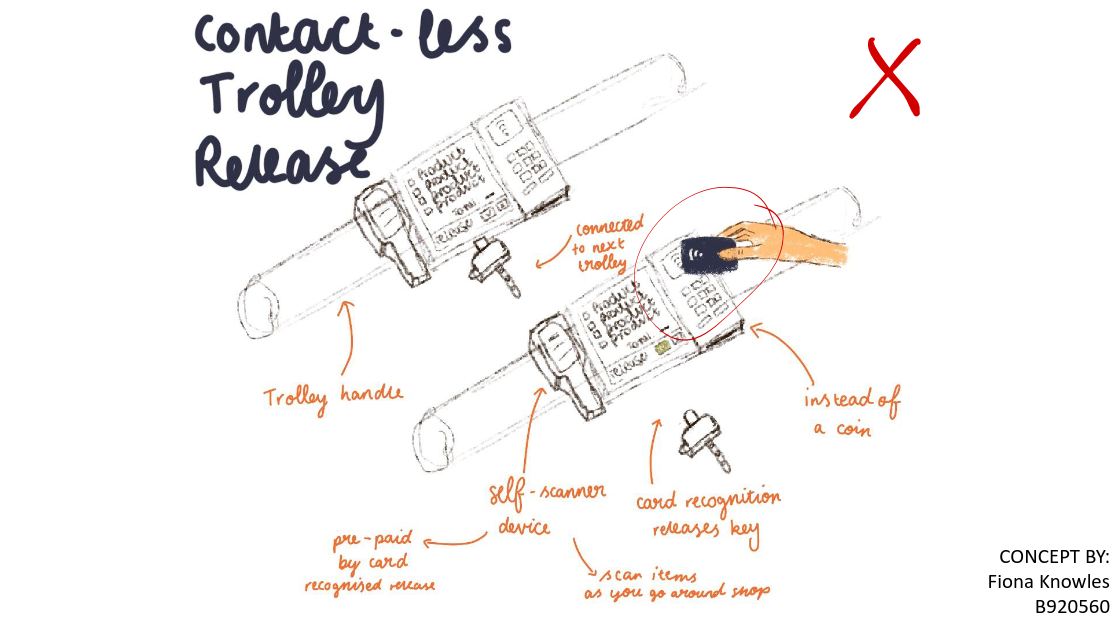 Contact-less
Trolley
Release
Product
Product
Product
Product
Total
release
connected
to next
trolley
Product
Product
Product
Product
Total
release
Trolley handle
instead of
a coin
self-scanner
device
card recognition
releases key
pre-paid
by card
recognised release
scan items
as you go around shop
CONCEPT BY:
Fiona Knowles
B920560